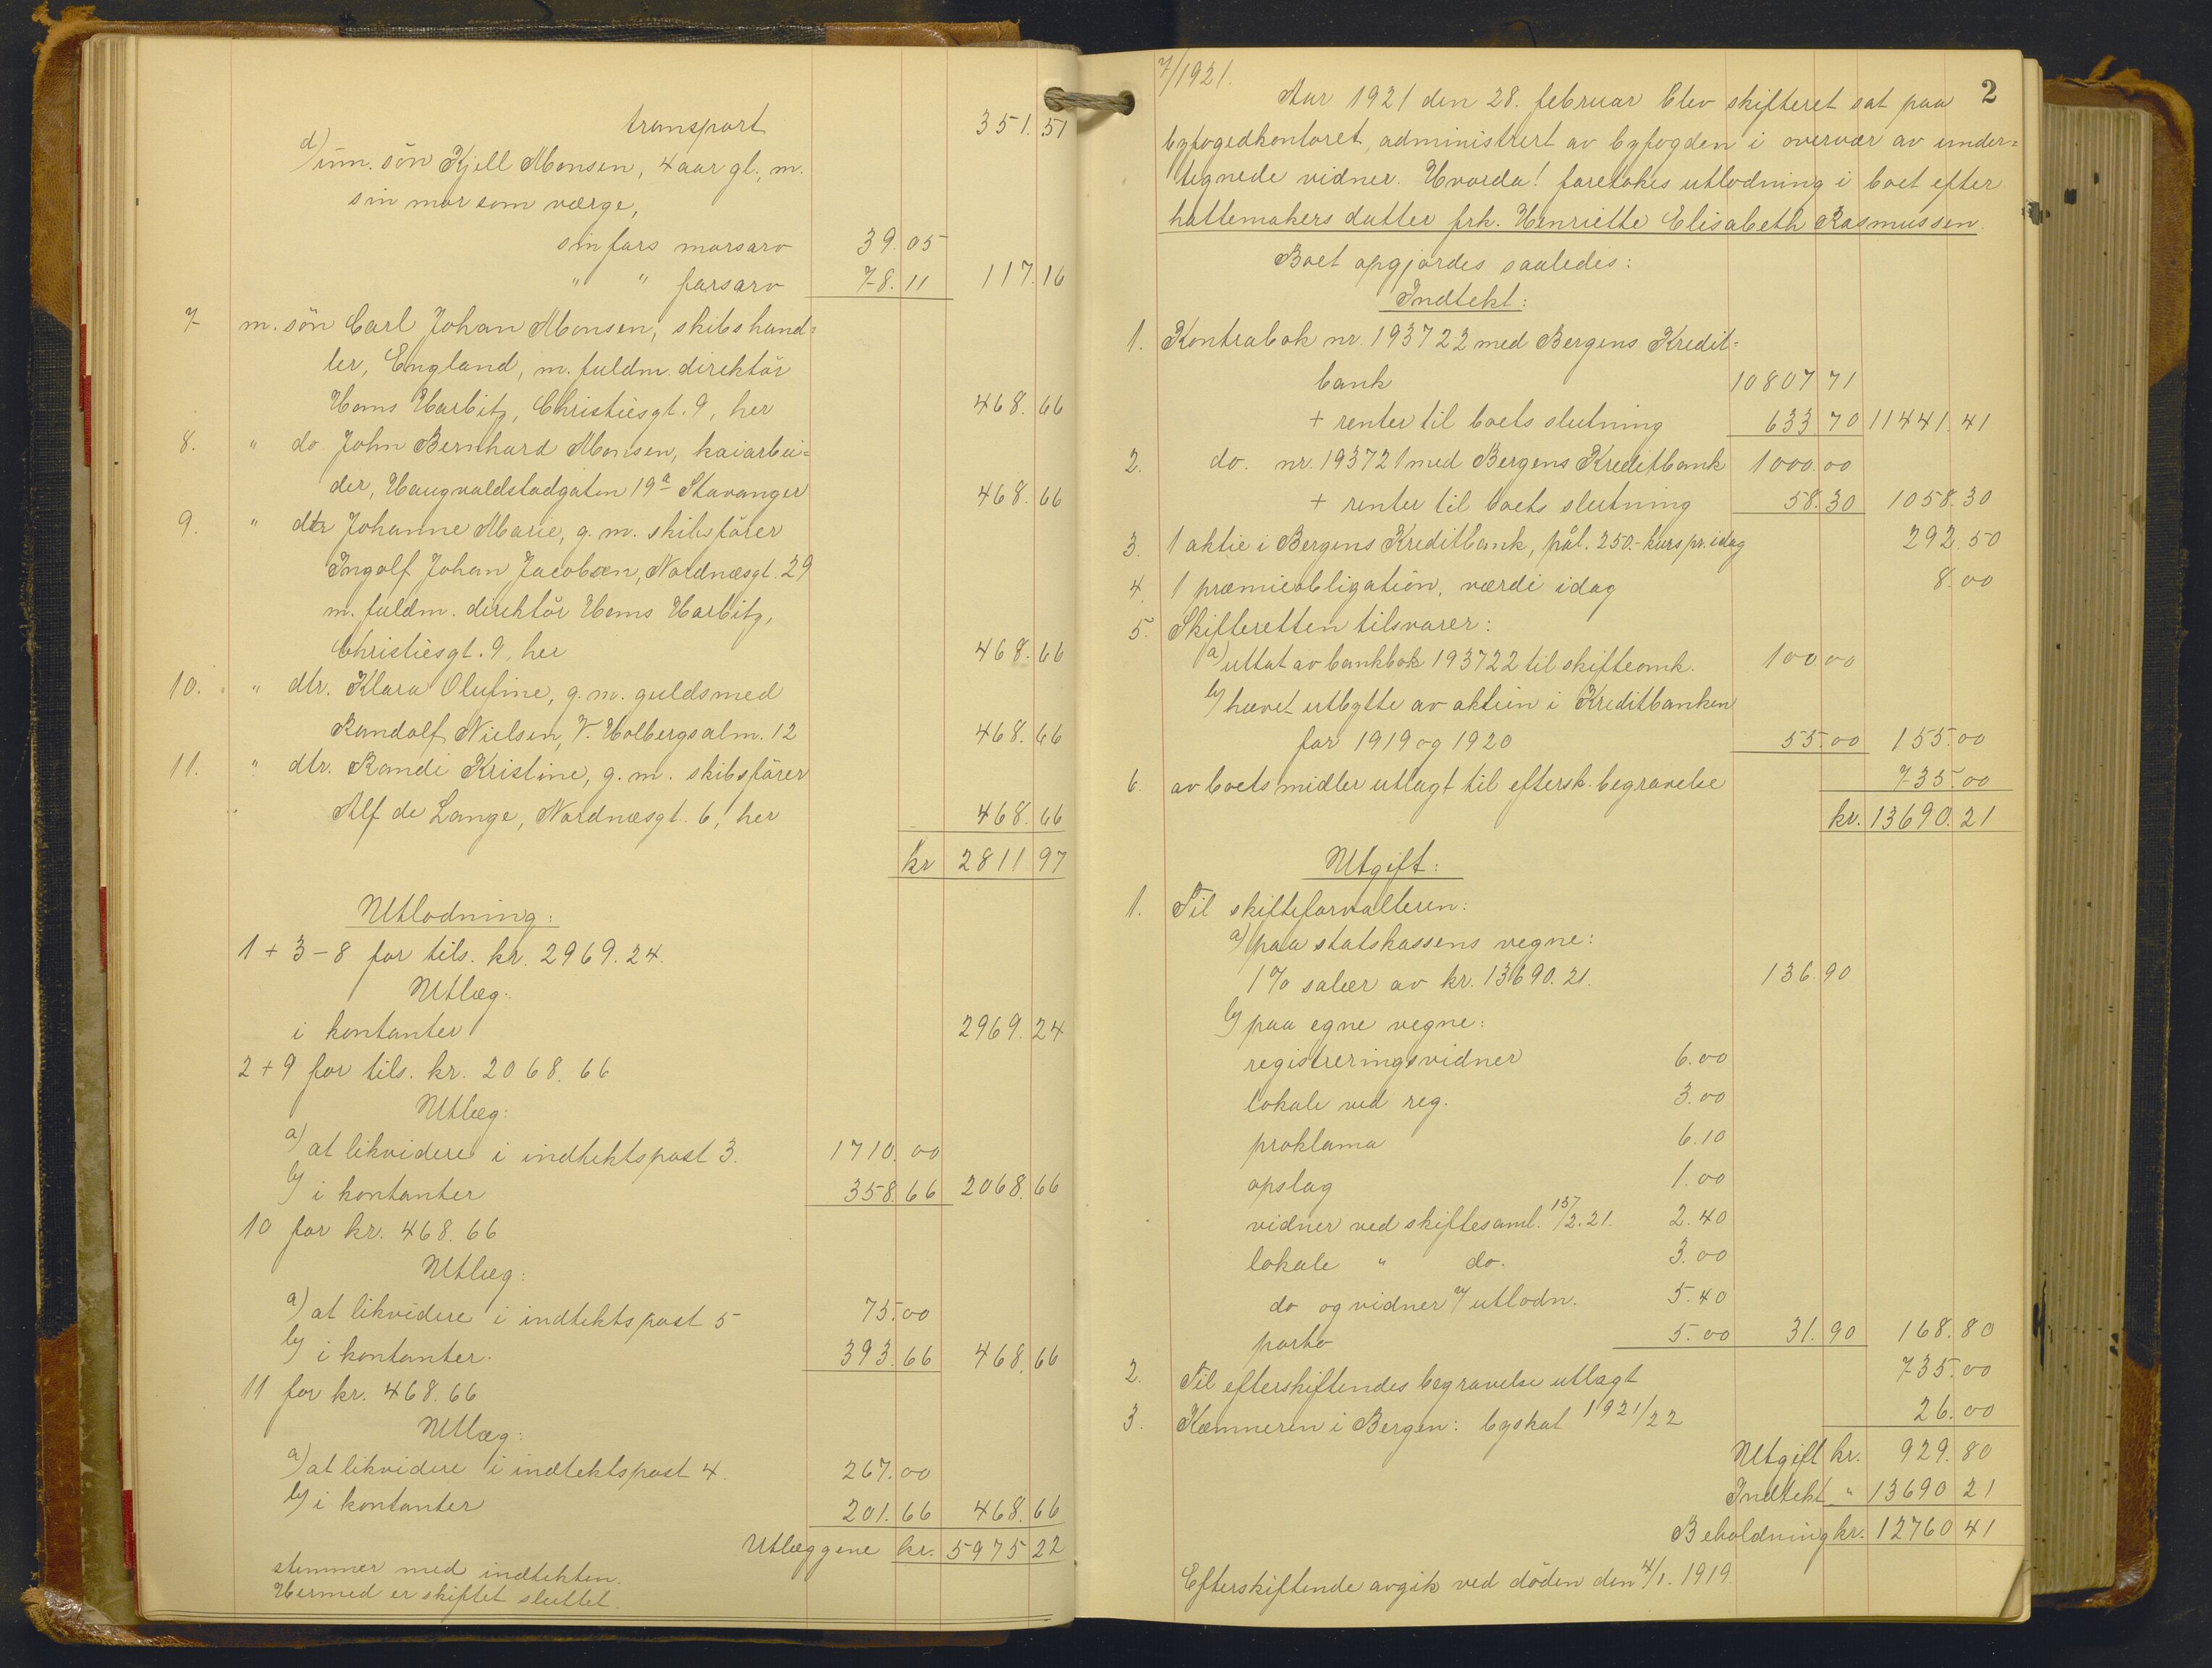 transport 351. 51
d) um. sön Kjell Monsen, 4 aar gl., m.
sin mor som værge,
sin fars morsarv 39. 05
" " farsarv 78. 11 117. 16
7 m. sön Carl Johan Monsen, skibshand=
ler, England, m. fuldm. direktör
Hans Harbitz, Christiesgt. 9, her 468. 66
8. " do. John Bernhard Monsen, kaiarbei=
der, Haugvaldstadgaten 19a Stavanger 468. 66
9. " dtr Johanne Marie, g. m. skibsförer
Ingolf Johan Jacobsen, Nordnæsgt. 29
m. fuldm. direktör Hans Harbitz,
Christiesgt. 9, her 468. 66
10. " dtr. Klara Olufine, g. m. guldsmed
Randolf Nielsen, V. Holbergsalm. 12 468. 66
11. " dtr. Randi Kristine, g. m. skibsförer
Alf de Lange, Nordnæsgt. 6, her 468. 66
kr 2811 97
Utlodning:
1 + 3 – 8 for tils. kr. 2969. 24.
Utlæg:
i kontanter 2969. 24
2 + 9 for tils. kr. 2068. 66
Utlæg:
a) at likvidere i indtektspost 3. 1710. 00
b) i kontanter 358. 66 2068. 66
10 for kr. 468. 66
Utlæg:
a) at likvidere i indtektspost 5 75. 00
b) i kontanter. 393. 66 468. 66
11 for kr. 468. 66
Utlæg:
a) at likvidere i indtektspost 4. 267. 00
b) i kontanter 201. 66 468. 66
Utlæggene kr. 5975 22
stemmer med indtekten.
Hermed er skiftet sluttet.
7/1921.
2
Aar 1921 den 28. februar blev skifteret sat paa
byfogedkontoret, administrert av byfogden i overvær av under=
tegnede vidner. Hvorda! foretokes utlodning i boet efter
hattemakers datter frk. Henriette Elisabeth Rasmussen.
Boet opgjordes saaledes:
Indtekt:
1. Kontrabok nr. 193722 med Bergens Kredit=
bank 10807 71
+ renter til boets slutning 633 70 11441. 41
2. do. nr. 193721 med Bergens Kreditbank 1000. 00
+ renter til boets slutning 58. 30 1058. 30
3. 1 aktie i Bergens Kreditbank, pål. 250.- kurs pr. idag 292. 50
4. 1 præmieobligation, værdi idag 8. 00
5. Skifteretten tilsvarer:
a) uttat av bankbok 193722 til skifteomk. 100. 00
b) hævet utbytte av aktien i Kreditbanken
for 1919 og 1920 55. 00 155. 00
6. av boets midler utlagt til eftersk. begravelse 735. 00
kr. 13690. 21
Utgift:
1. Til skifteforvalteren:
a) paa statskassens vegne:
1 % salær av kr. 13690. 21. 136. 90
b) paa egne vegne:
registreringsvidner 6. 00
lokale ved reg. 3. 00
proklama 6. 10
opslag 1. 00
vidner ved skiftesaml. 15/2. 21. 2. 40
lokale " do. 3. 00
do og vidner v/ utlodn. 5. 40
porto 5. 00 31. 90 168. 80
2. Til efterskiftendes begravelse utlagt 735. 00
3. Kæmneren i Bergen: byskat 1921/22 26. 00
Utgift kr. 929. 80
Indtekt " 13690 21
Beholdning kr. 12760 41
Efterskiftende avgik ved döden den 4/1. 1919.